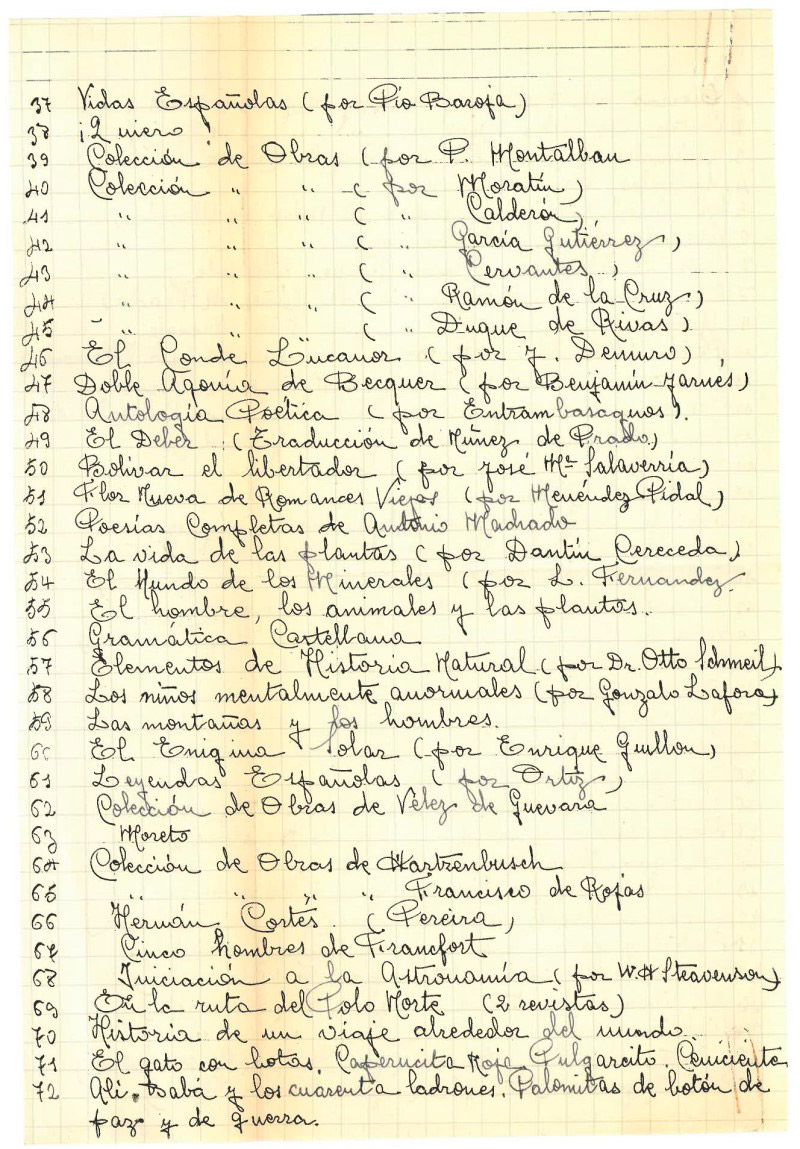 37 Vidas Españolas (por Pío Baroja)
38 ¡Quiero!
39 Colección de Obras (por P. Montalban
40 Colección " " ( por Moratín)
41 " " " ( " Calderón)
42 " " " ( " García Gutiérrez)
43 " " " ( " Cervantes)
44 " " " ( " Ramón de la Cruz)
45 " " ( " Duque de Rivas)
46 El Conde Lucanor (por J. Demuro)
47 Doble Agonía de Becquer (por Benjamín Jarnés)
48 Antología Poética (por Entrambasaguos).
49 El Deber (Traducción de Núñez de Prado)
50 Bolivar el libertador (por José Mª Salaverría)
51 Flor Nueva de Romances Viejos (por Menéndez Pidal)
52 Poesías Completas de Antonio Machado
53 La vida de las plantas (por Dantín Cereceda)
54 El Mundo de los Minerales (por L. Fernandez.
55 El hombre, los animales y las plantas.
56 Gramática Castellana
57 Elementos de Historia Natural (por Dr. Otto Schmeil)
58 Los niños mentalmente anormales (por Gonzalo Lafora)
59 Las montañas y los hombres.
60 El Enigma Solar (por Enrique Guillou)
61 Leyendas Españolas (por Ortiz)
62 Colección de Obras de Vélez de Guevara
63 Moreto
64 Colección de Obras de Hartzenbusch
65 " " " " Francisco de Rojas
66 Hernán Cortés (Pereira)
67 Cinco hombres de Francfort
68 Iniciación a la Astronomía (por W. H Steavenson)
69 En la ruta del Polo Norte (2 revistas)
70 Historia de un viaje alrededor del mundo.
71 El gato con botas, Caperucita Roja, Pulgarcito. Cenicienta
72 Ali-Babá y los cuarenta ladrones. Palomitas de botón de
paz y de guerra.